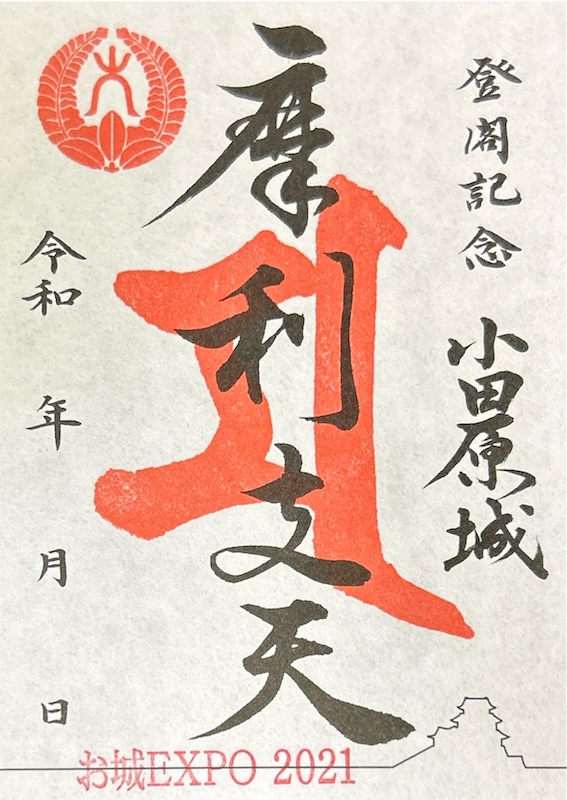 登閣記念 小田原城
摩利支天
令和 年 月 日
お城EXPO 2021